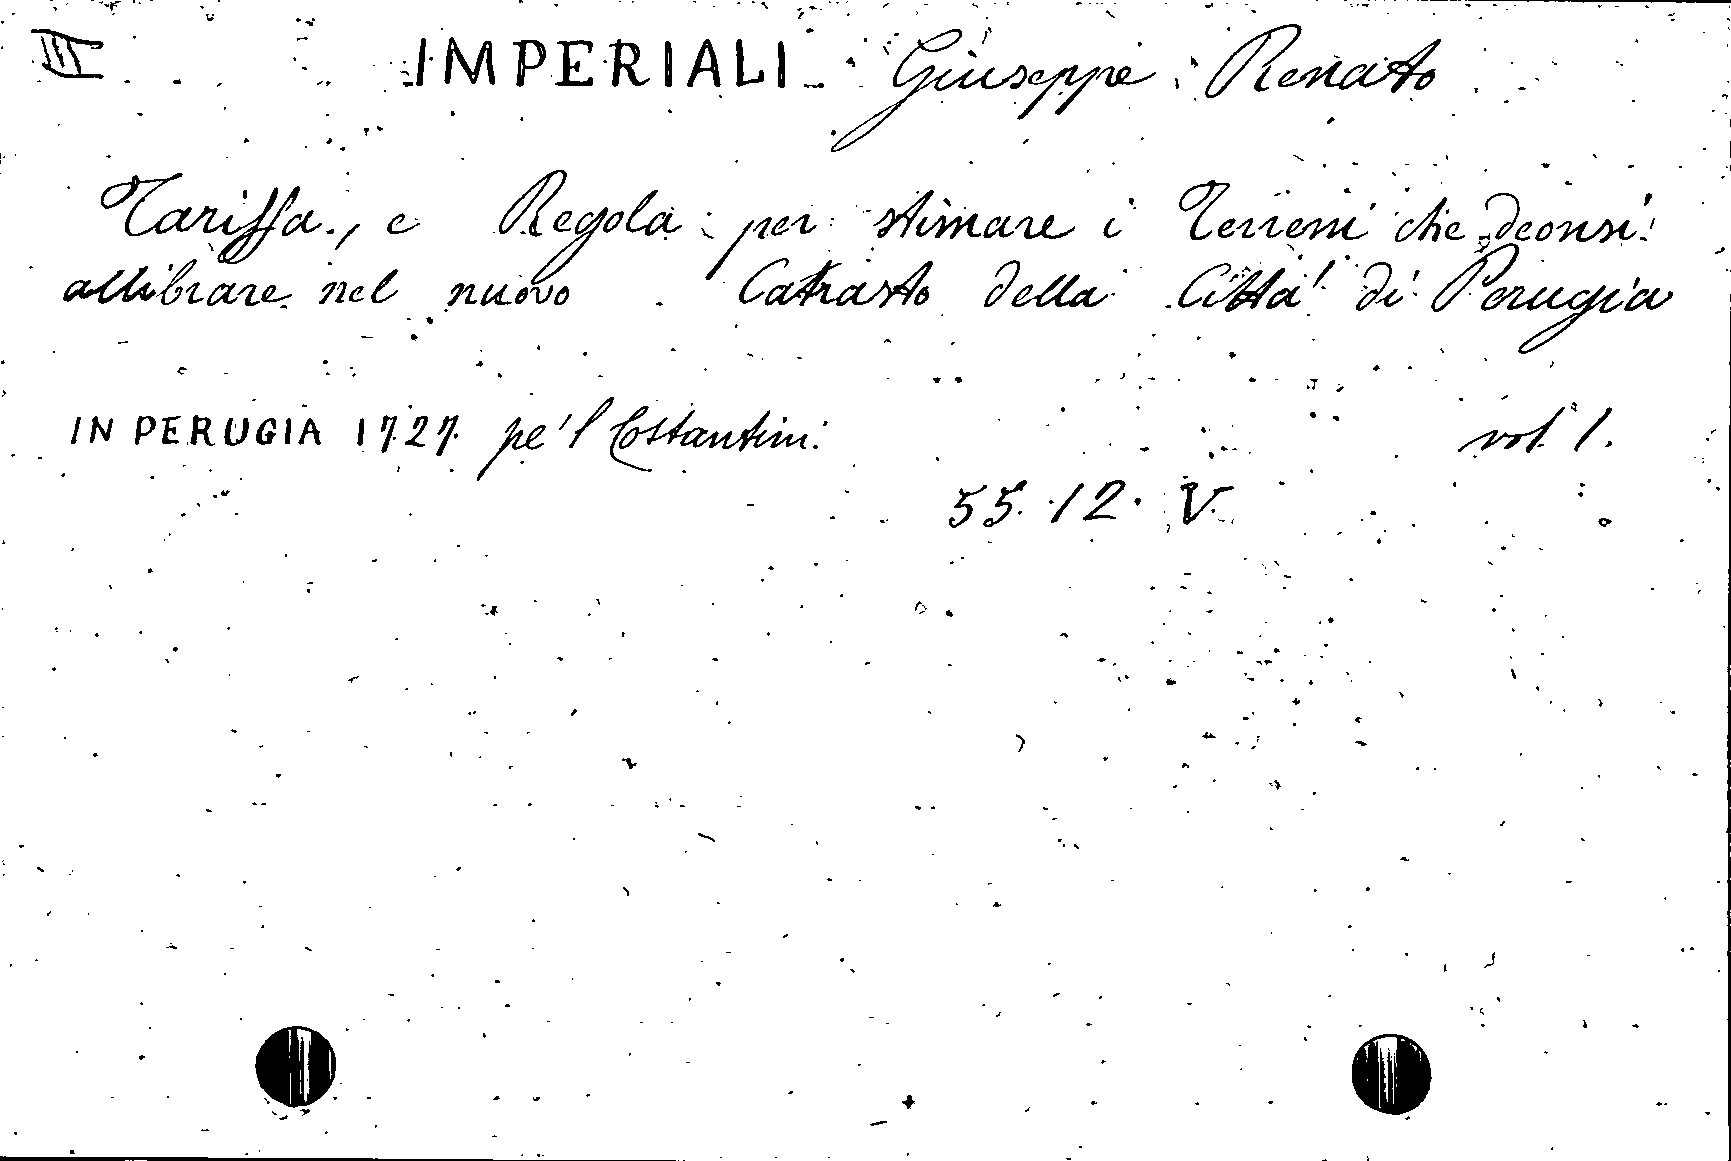 III IMPERIALI Giuseppe Renato
Tariffa, e Regola per stimare i Terreni che deonsi
allibrare nel nuovo Catrasto della Città di Perugia
IN PERUGIA 1727 pe'l Costantini vol. 1.
55. 12. V